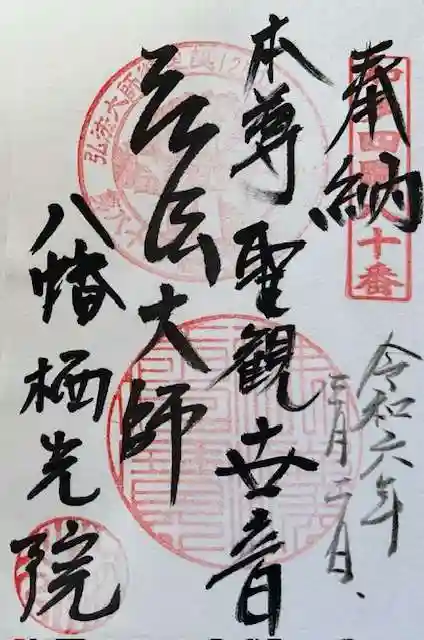 奉納
令和六年
三月二日、
本尊聖観世音
弘法大師
八幡栖光院
十番
弘法大師